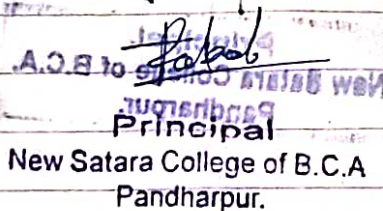 Principal
New Satara College of B.C.A
Pandharpur.